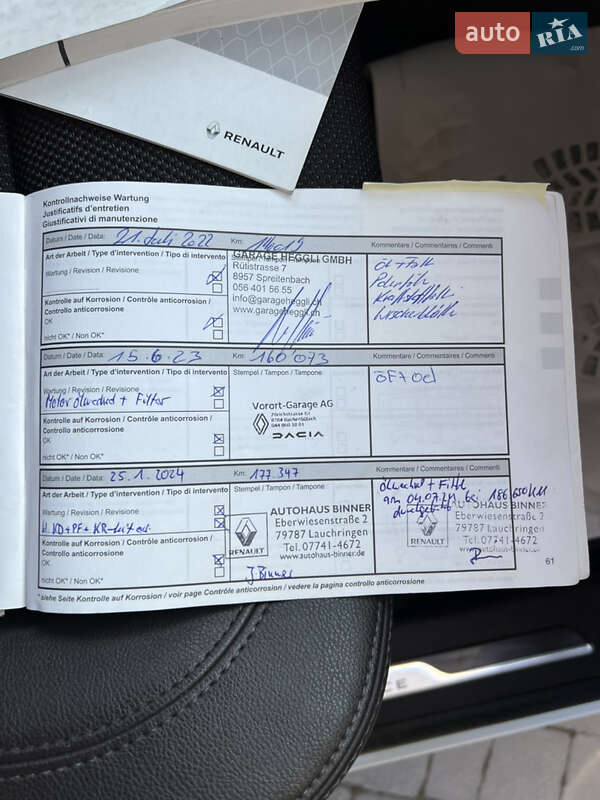 auto RIA.com
RENAULT
Kontrollnachweise Wartung
Justificatifs d'entretien
Giustificativi di manutenzione
Datum / Date / Data: 21. Juli 2022 Km:
Kommentare / Commentaires / Commenti
Art der Arbeit / Type d'intervention / Tipo di intervento
Wartung / Revision / Revisione
Kontrolle auf Korrosion / Contrôle anticorrosion /
Controllo anticorrosione
OK
nicht OK* / Non OK*
GARAGE HEGGLI GMBH
Rütistrasse 7
8957 Spreitenbach
056 401 56 55
info@garageheggli.ch
www.garageheggli.ch
Datum / Date / Data: 15.6.23 Km: 160'073
Kommentare / Commentaires / Commenti
Art der Arbeit / Type d'intervention / Tipo di intervento
Wartung / Revision / Revisione
Motorölwechsel + Filter
Kontrolle auf Korrosion / Contrôle anticorrosion /
Controllo anticorrosione
OK
nicht OK* / Non OK*
Stempel / Timbre / Tampone:
Vorort-Garage AG
DACIA
Datum / Date / Data: 25.1.2024 Km: 177.347
Kommentare / Commentaires / Commenti
Art der Arbeit / Type d'intervention / Tipo di intervento
Wartung / Revision / Revisione
Kontrolle auf Korrosion / Contrôle anticorrosion /
Controllo anticorrosione
OK
nicht OK* / Non OK*
Stempel / Timbre / Tampone:
RENAULT
AUTOHAUS BINNER
Eberwiesenstraße 2
79787 Lauchringen
Tel. 07741-4672
www.autohaus-binner.de
J Binner
Ölwechsel + Filter
am 04.07.24 bei 186 650 KM
AUTOHAUS BINNER
Eberwiesenstraße 2
79787 Lauchringen
Tel. 07741-4672
www.autohaus-binner.de
RENAULT
61
* siehe Seite Kontrolle auf Korrosion / voir page Contrôle anticorrosion / vedere la pagina controllo anticorrosione